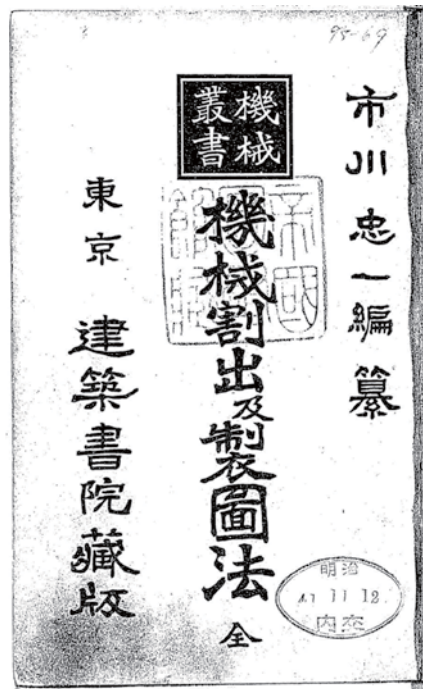 95-69
市川忠一編纂
機械
叢書
機械割出及製圖法 全
東京 建築書院藏版
明治
41 11 12
内交